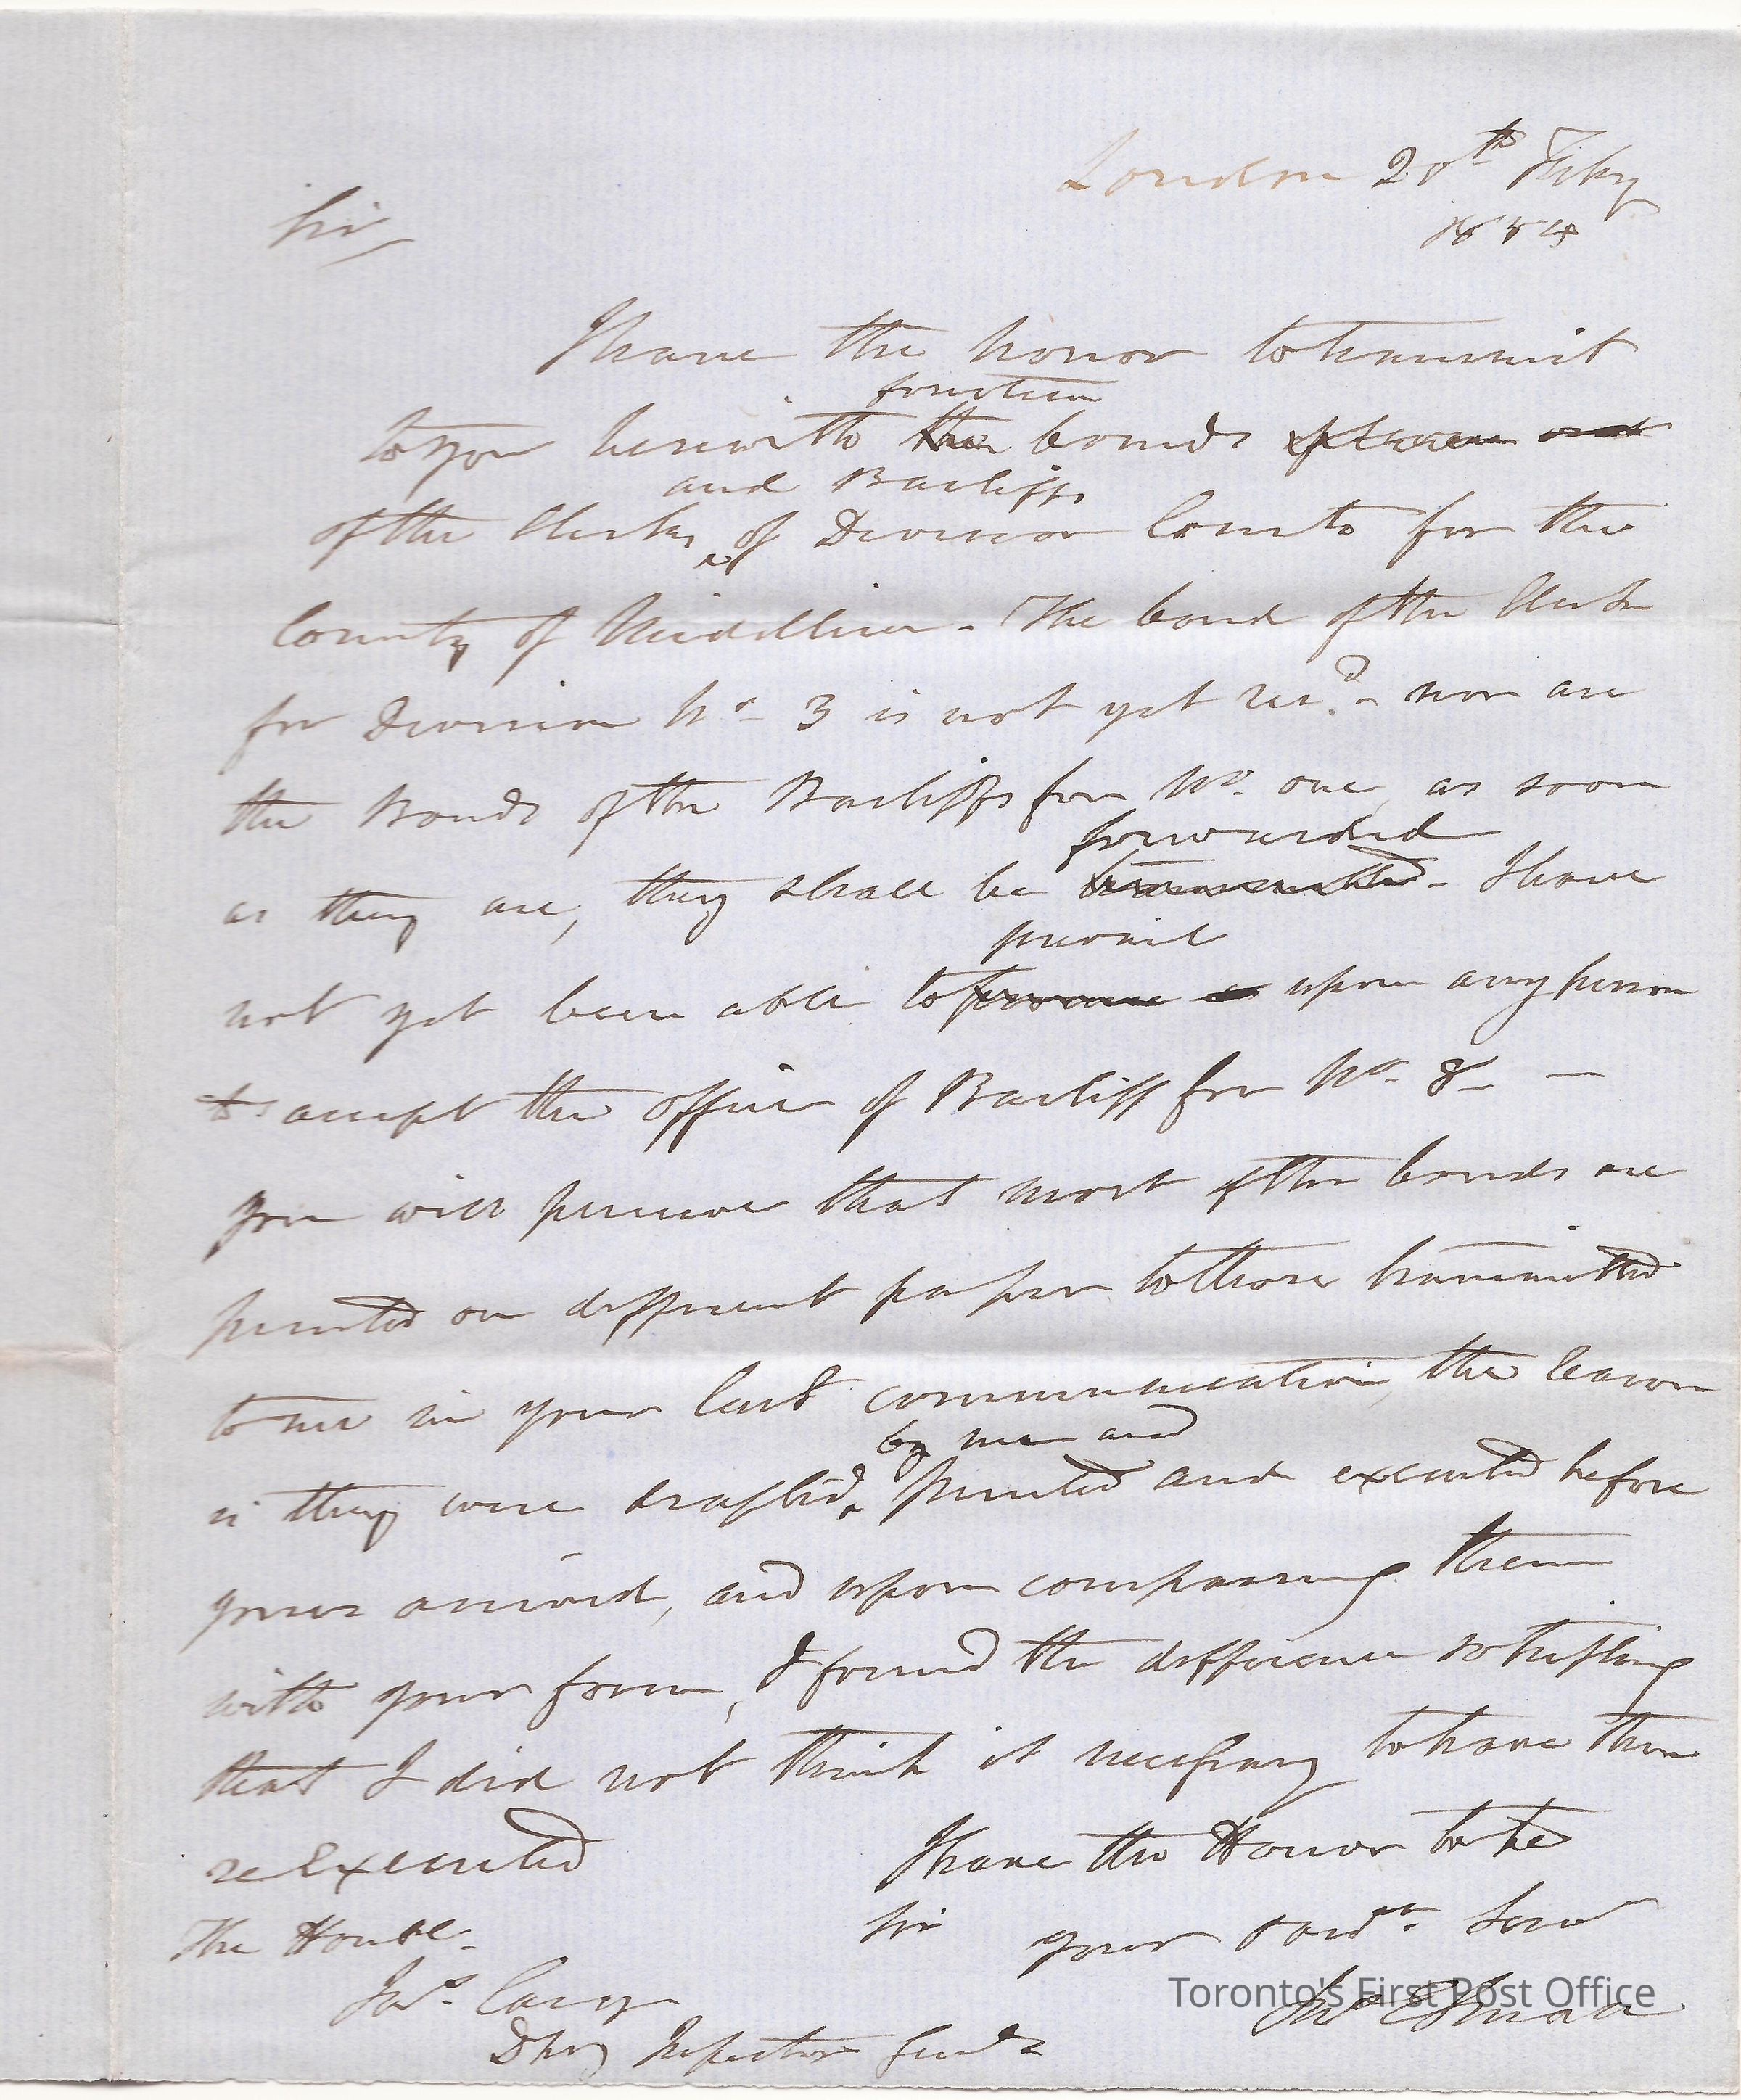 London 20th Feby
1854
Sir
I have the honor to transmit
fourteen
to you herewith the bonds
and Bailiffs
of the Clerks of Division Courts for the
County of Middlesex. The bond of the Clerk
for Division No 3 is not yet recd. nor are
the Bonds of the Bailiffs for No. one, as soon
forwarded
as they are, they shall be transmitted. I have
prevail
not yet been able to upon any person
to accept the office of Bailiff for No. 8 —
you will perceive that most of the bonds are
printed on different paper to those transmitted
to me in your last communication, the reason
by me and
is they were drafted, printed and executed before
yours arrived, and upon comparing them
with your form, I found the difference so trifling
that I did not think it necessary to have them
reExecuted
I have the Honor to be
Sir your Servt
The Honble.
Jos. Cary
Dpy Inspector Genl
Toronto's First Post Office